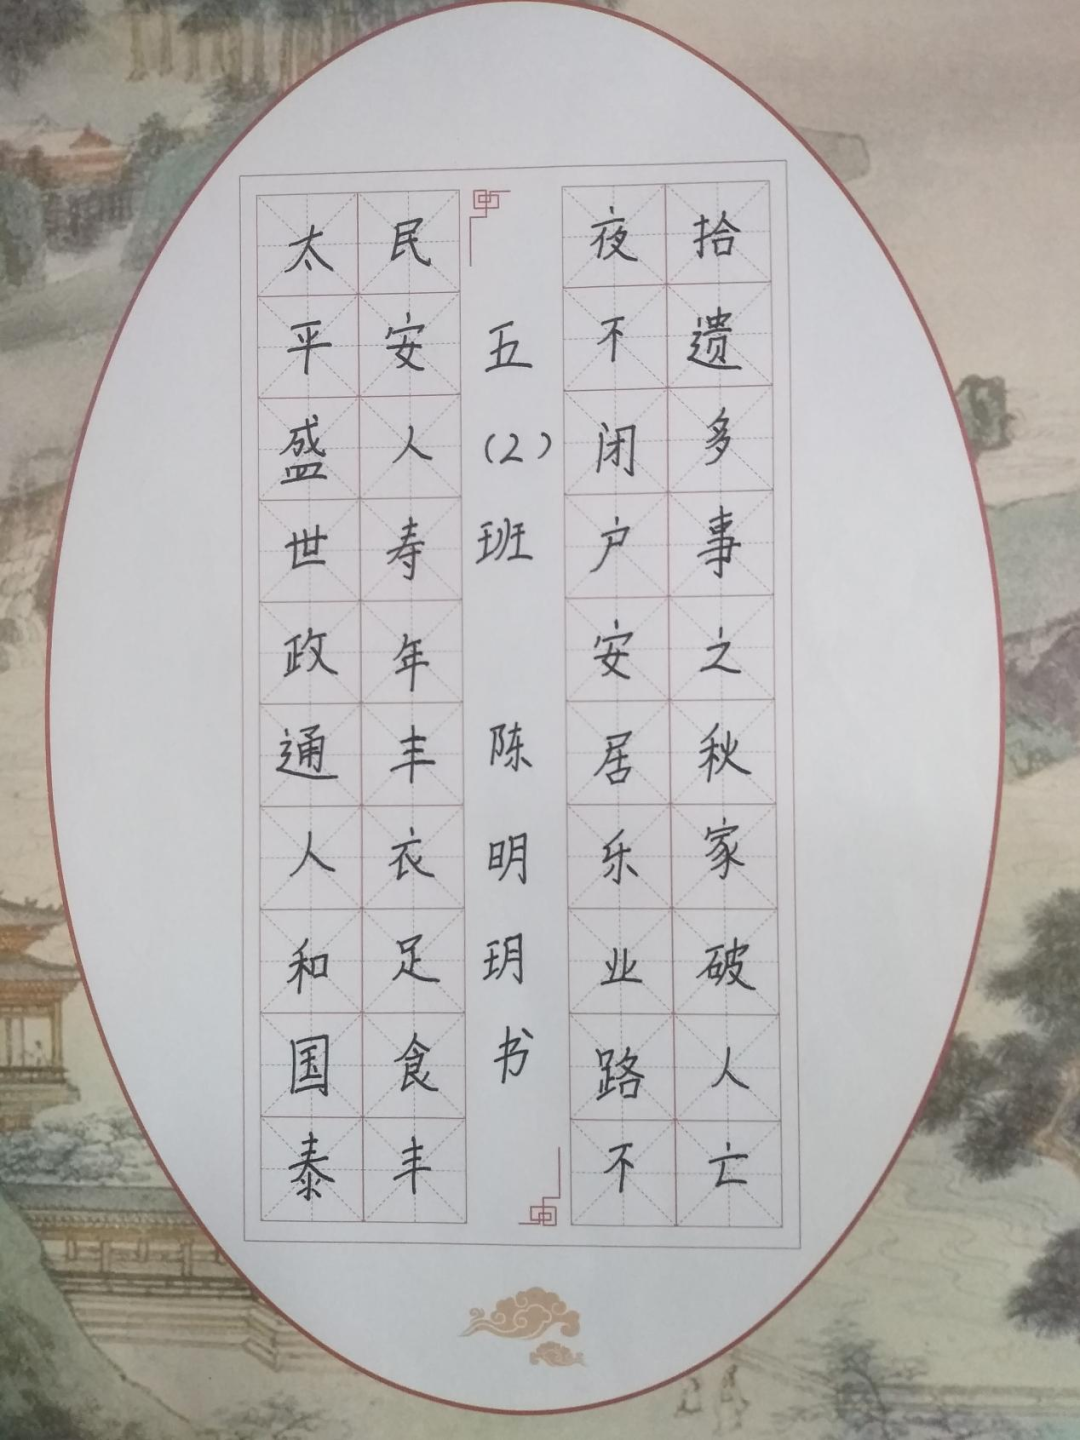 太平盛世政通人和国泰
民安人寿年丰衣足食丰
五（2）班 陈明玥书
夜不闭户安居乐业路不
拾遗多事之秋家破人亡